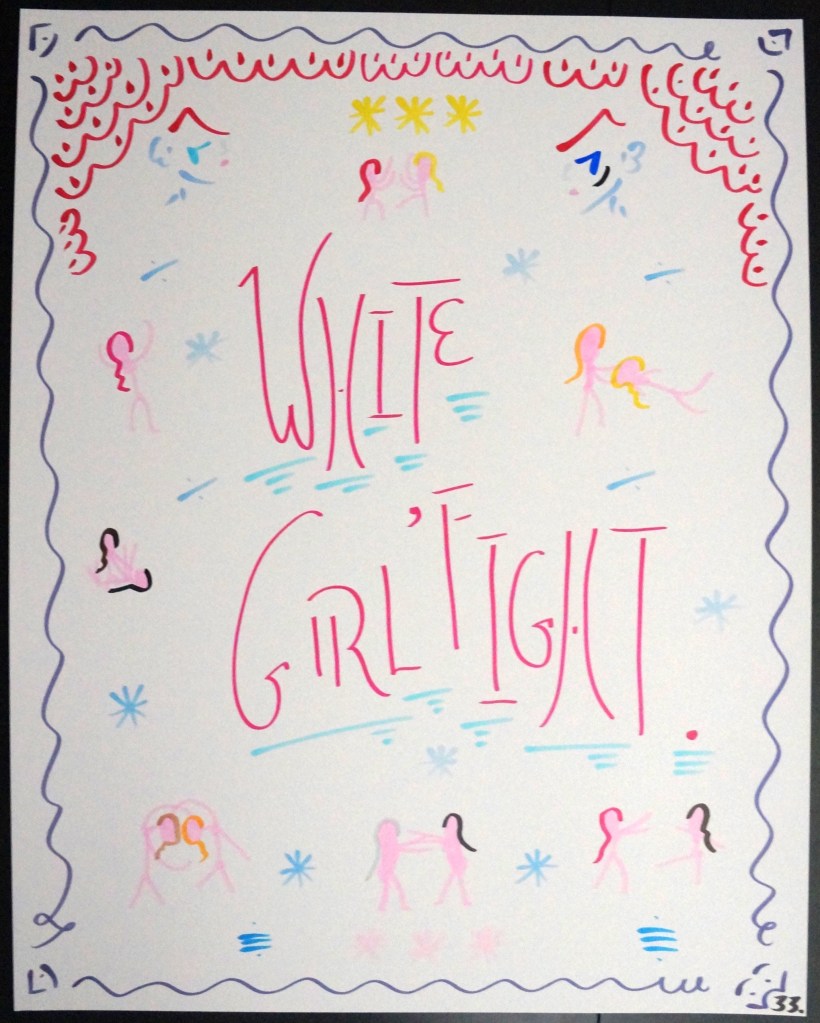 WHITE
GIRL'FIGHT.
33.